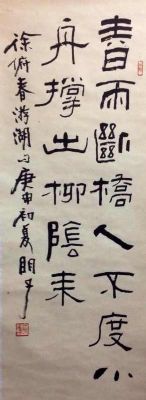 春雨斷橋人不度小
舟撐出柳陰來
徐俯春游湖句庚申初夏